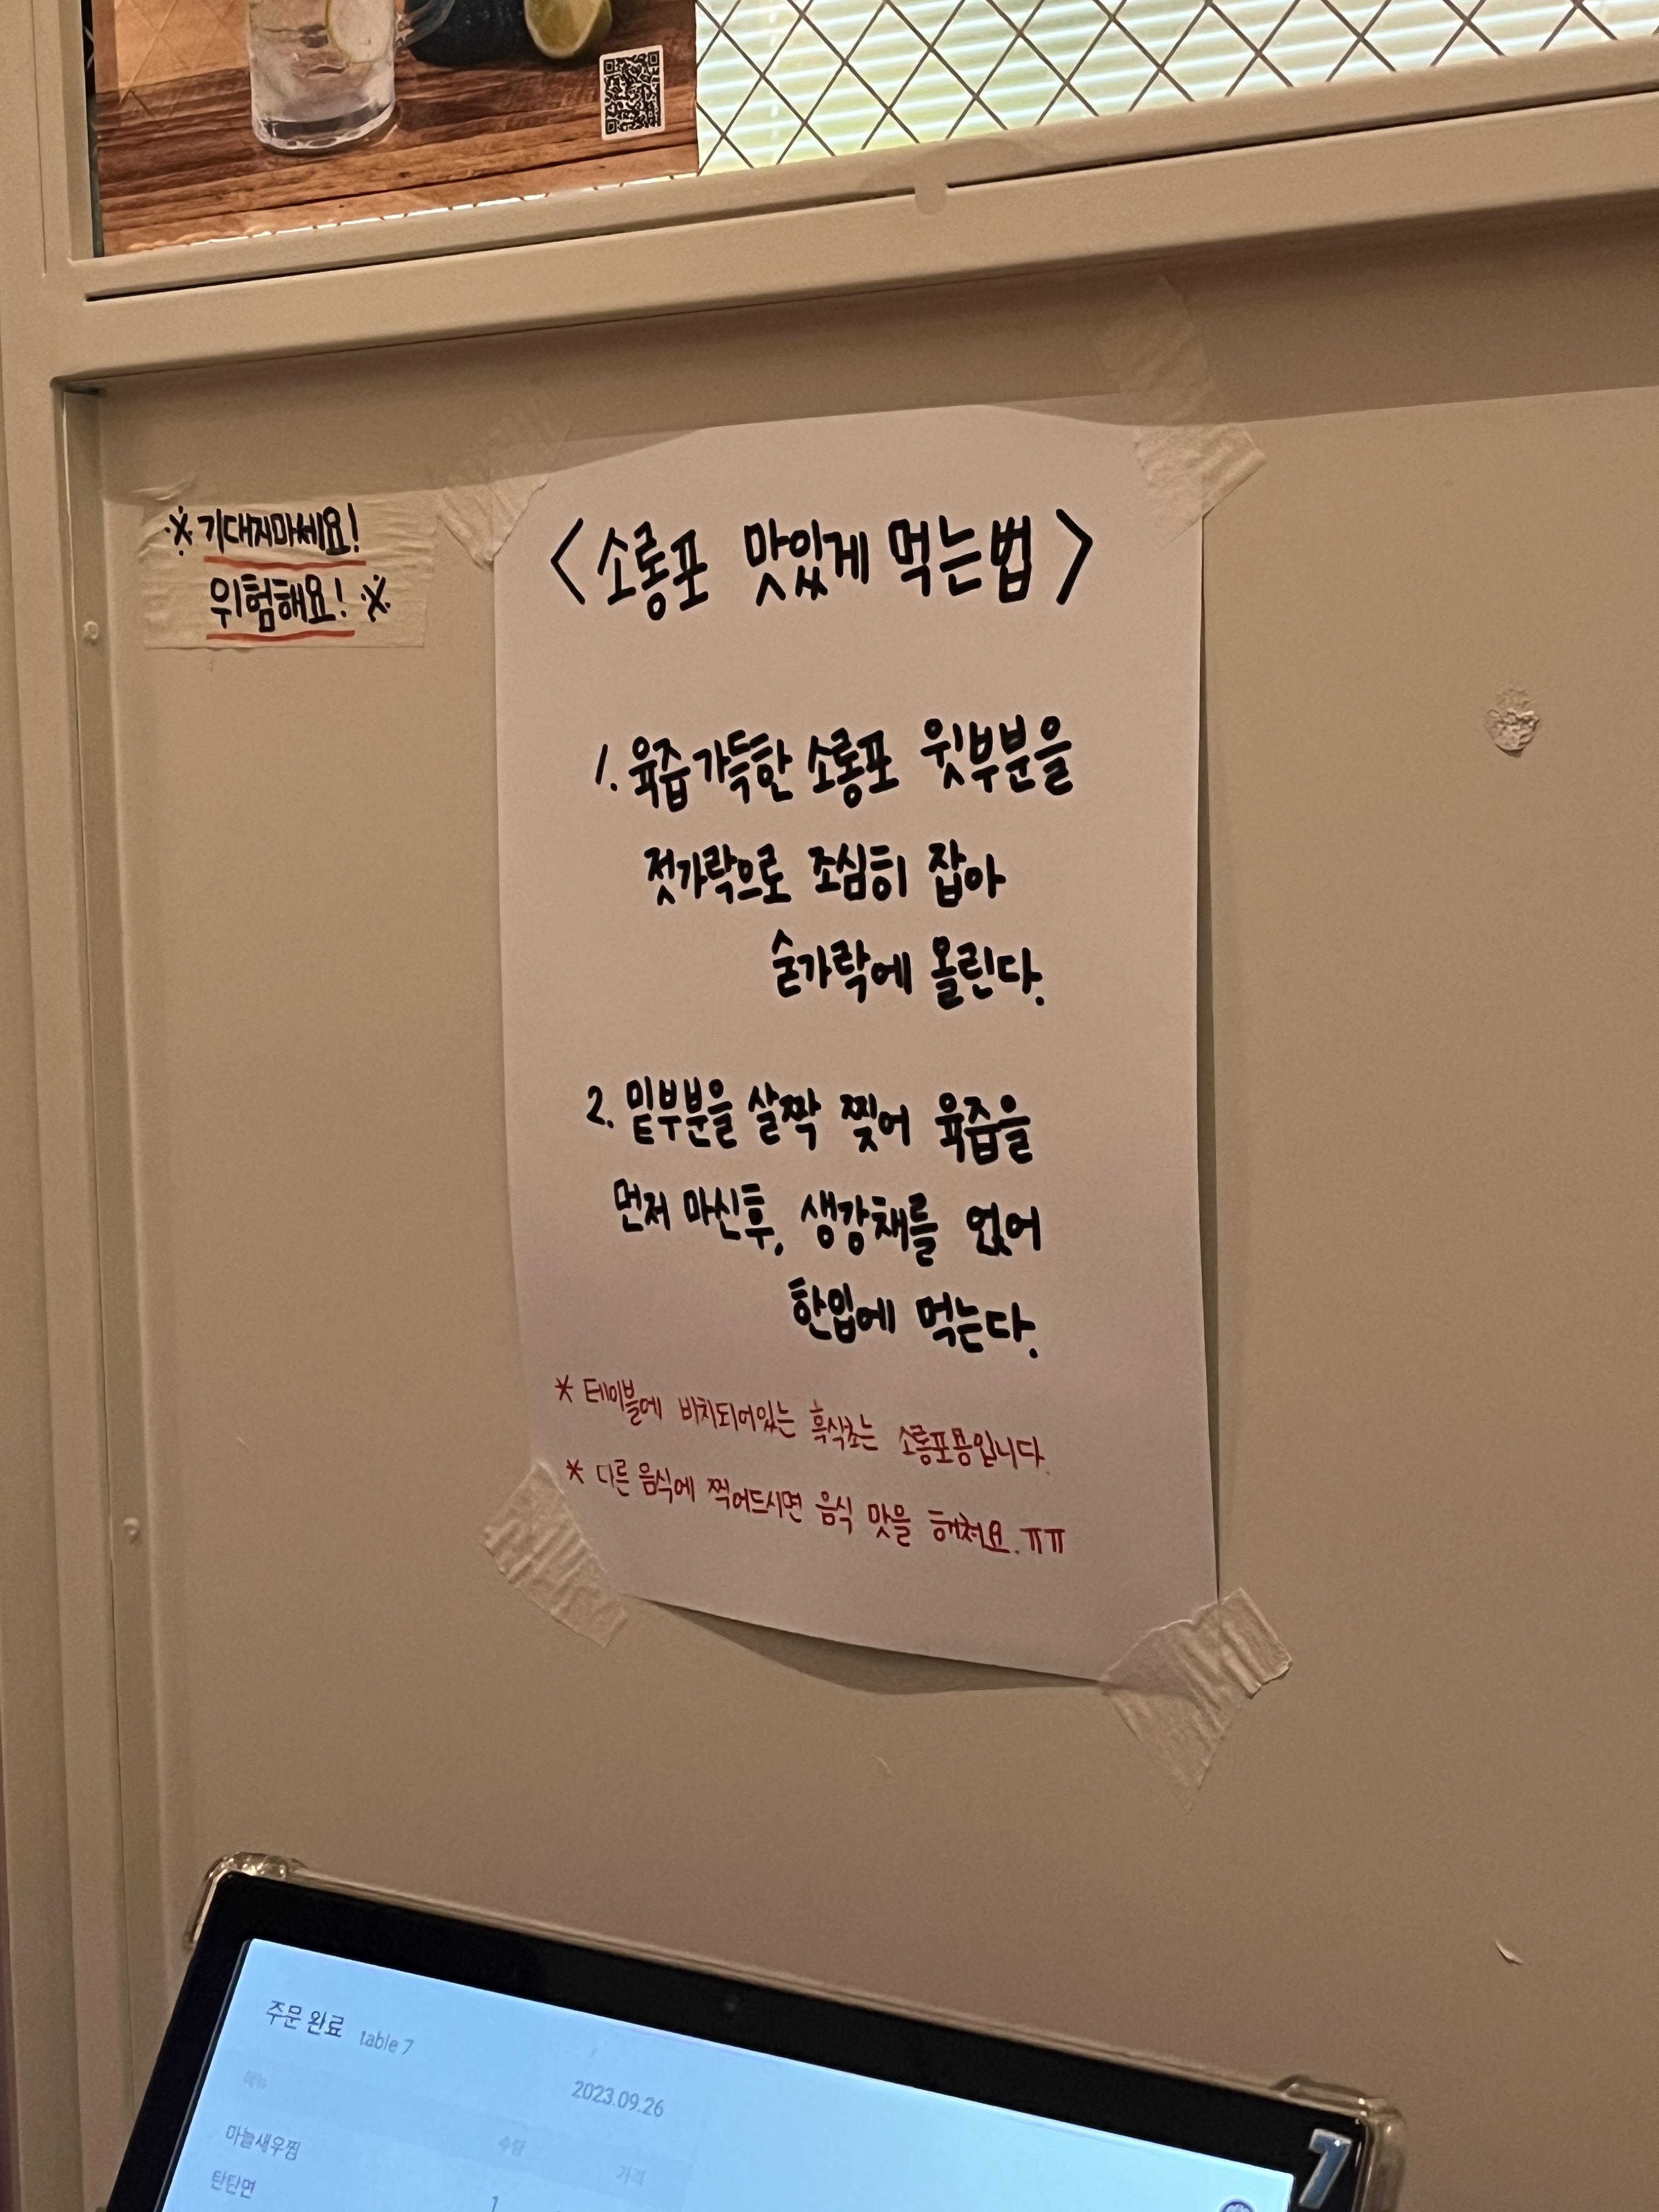 ※기대지마세요!
위험해요!※
<소롱포 맛있게 먹는법>
1. 육즙가득한 소롱포 윗부분을
젓가락으로 조심히 잡아
숟가락에 올린다.
2. 밑부분을 살짝 찢어 육즙을
먼저 마신후, 생강채를 얹어
한입에 먹는다.
* 테이블에 비치되어있는 흑식초는 소롱포용입니다.
* 다른 음식에 찍어드시면 음식 맛을 해쳐요.ㅠㅠ
주문 완료 table 7
2023.09.26
메뉴 수량 가격
마늘새우찜
탄탄면 1
7